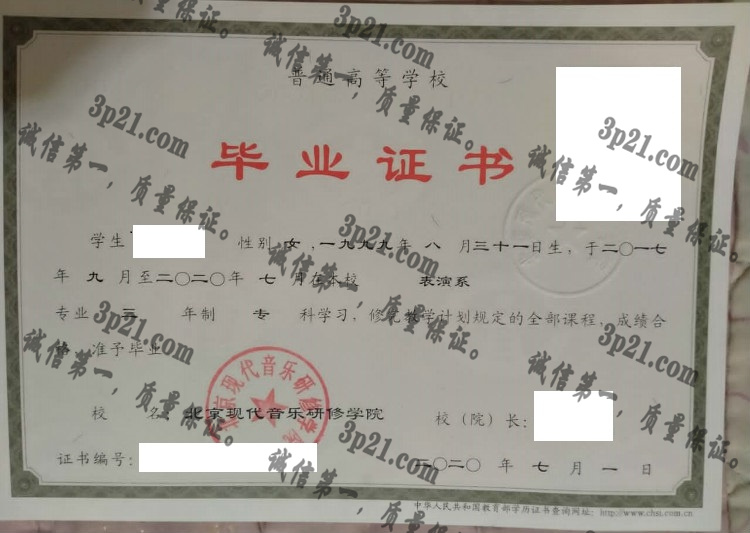 普通高等学校
毕业证书
学生 性别 女 ,一九九九年 八 月三十一日生，于二〇一七
年 九 月至二〇二〇年 七 月在本校 表演系
专业 三 年制 专 科学习，修完教学计划规定的全部课程，成绩合
格，准予毕业。
校 名 北京现代音乐研修学院 校（院）长：
证书编号： 二〇二〇 年 七 月 一 日
中华人民共和国教育部学历证书查询网址：http://www.chsi.com.cn
北京现代音乐研修学院
3p21.com
诚信第一，质量保证。
3p21.com
诚信第一，质量保证。
3p21.com
诚信第一，质量保证。
3p21.com
诚信第一，质量保证。
3p21.com
诚信第一，质量保证。
3p21.com
诚信第一，质量保证。
3p21.com
诚信第一，质量保证。
3p21.com
诚信第一，质量保证。